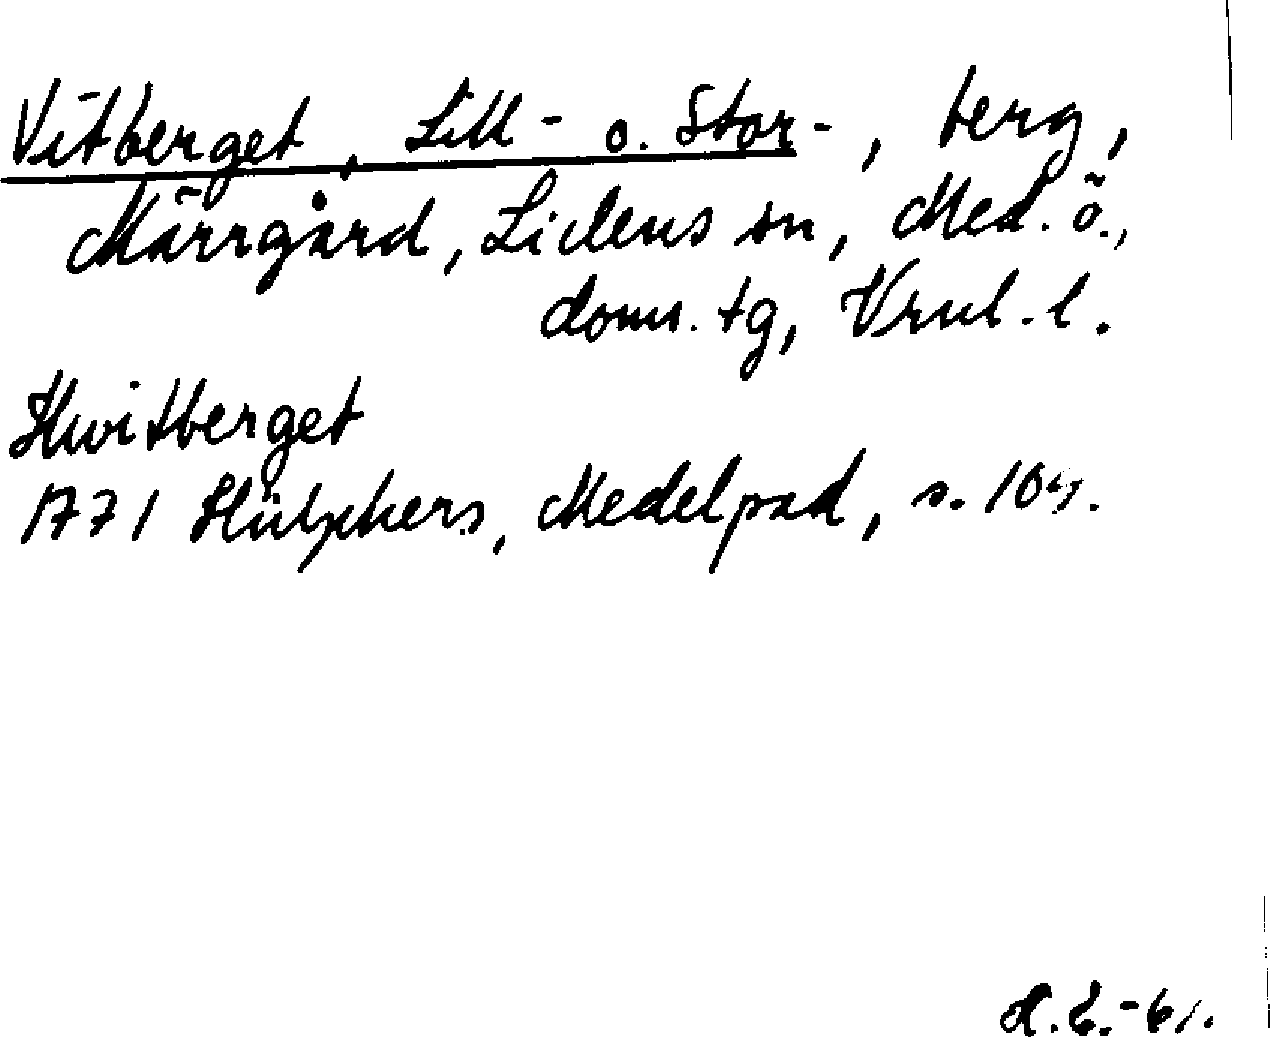 Vitberget, Lill- o. Stor-, berg,
Märrgård, Lidens sn, Med. ö.,
doms. tg, Vrnl. l.
Hwitberget
1771 Hülphers, Medelpad, s. 104.
H. E. -61.